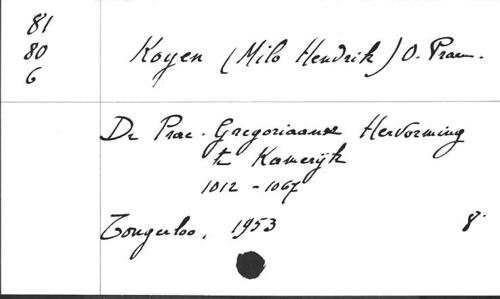 81
80
6
Koyen (Milo Hendrik) O. Praem.
De Prae-Gregoriaanse Hervorming
te Kamerijk
1012 - 1067
Tongerloo, 1953 8°